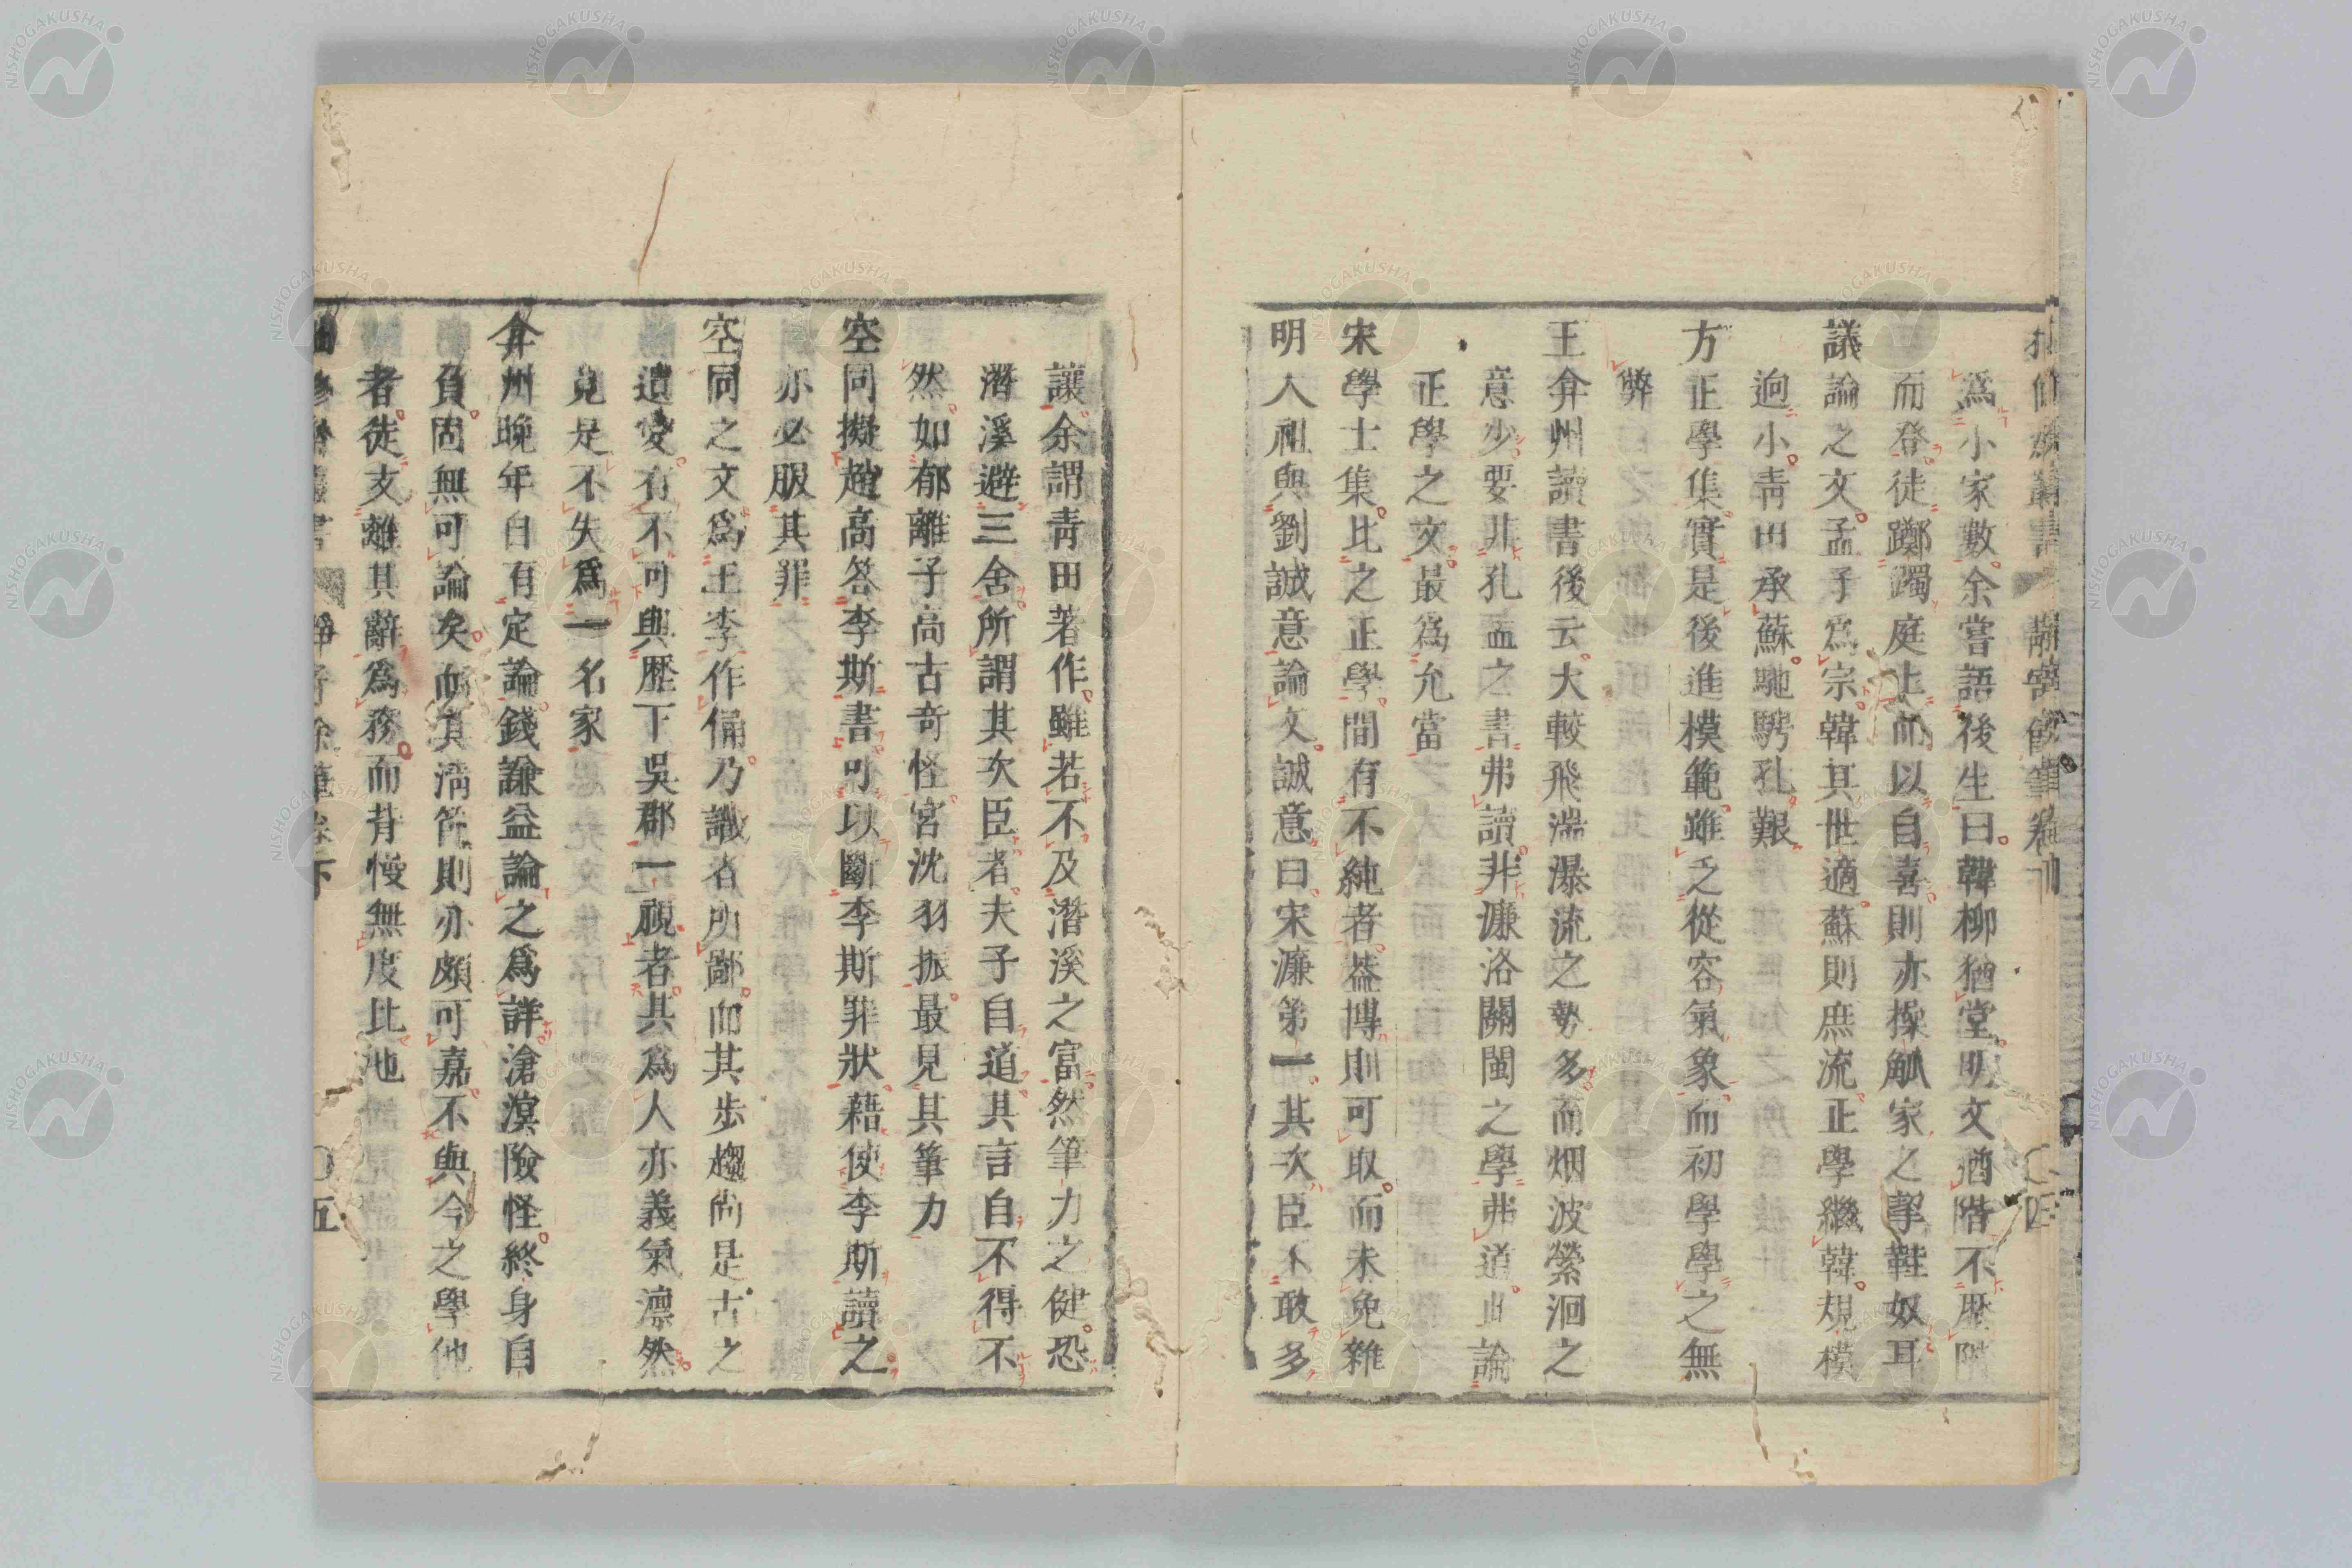 為小家數余嘗語後生曰韓柳猶堂明文猶階不歷階
而登徒躑躅庭上而以自喜則亦操觚家之挈鞋奴耳
議論之文孟子為宗韓其世適蘇則庶流正學繼韓規模
迫小青田承蘇馳騁孔艱
方正學集實是後進模範雖乏從容氣象而初學學之無
弊
王弇州讀書後云大較飛湍瀑流之勢多而烟波縈洄之
意少要非孔孟之書弗讀非濂洛關閩之學弗道此論
正學之文最為允當
宋學士集比之正學間有不純者葢博則可取而未免雜
明人祖與劉誠意論文誠意曰宋濂第一其次臣不敢多
讓余謂青田著作雖若不及潛溪之富然筆力之健恐
潛溪避三舍所謂其次臣者夫子自道其言自不得不
然如郁離子高古奇怪宮沈羽振最見其筆力
空同擬趙高答李斯書可以斷李斯罪狀藉使李斯讀之
亦必服其罪
空同之文為王李作俑乃識者所鄙而其步趨尚是古之
遺愛有不可與歷下吳郡一視者其為人亦義氣凛然
見是不失爲一名家
弇州晚年自有定論錢謙益論之爲詳滄溟險怪終身自
負固無可論矣而其清箇則亦頗可嘉不與今之學他
者徒支離其辭為務而背慢無度比也